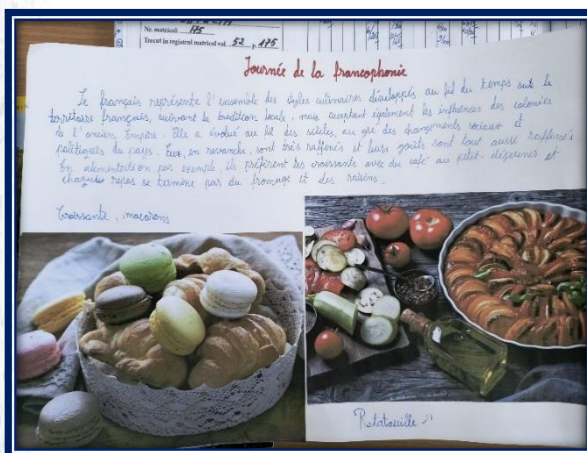 Nr. matricol 175
Trecut in registrul matricol vol. 52 p. 175
Journée de la francophonie
Le français représente l'ensemble des styles culinaires développés au fil du temps sur le
territoire français, suivant la tradition locale, mais acceptant également les influences des colonies
de l'ancien Empire. Elle a évolué au fil des siècles, au gré des changements sociaux et
politiques du pays. Eux, en revanche, sont très raffinés et leurs goûts sont tout aussi raffinés
En alimentation par exemple, ils préfèrent les croissants avec du café au petit-déjeuner et
chaque repas se termine par du fromage et des raisins.
Croissante, macarons
Ratatouille